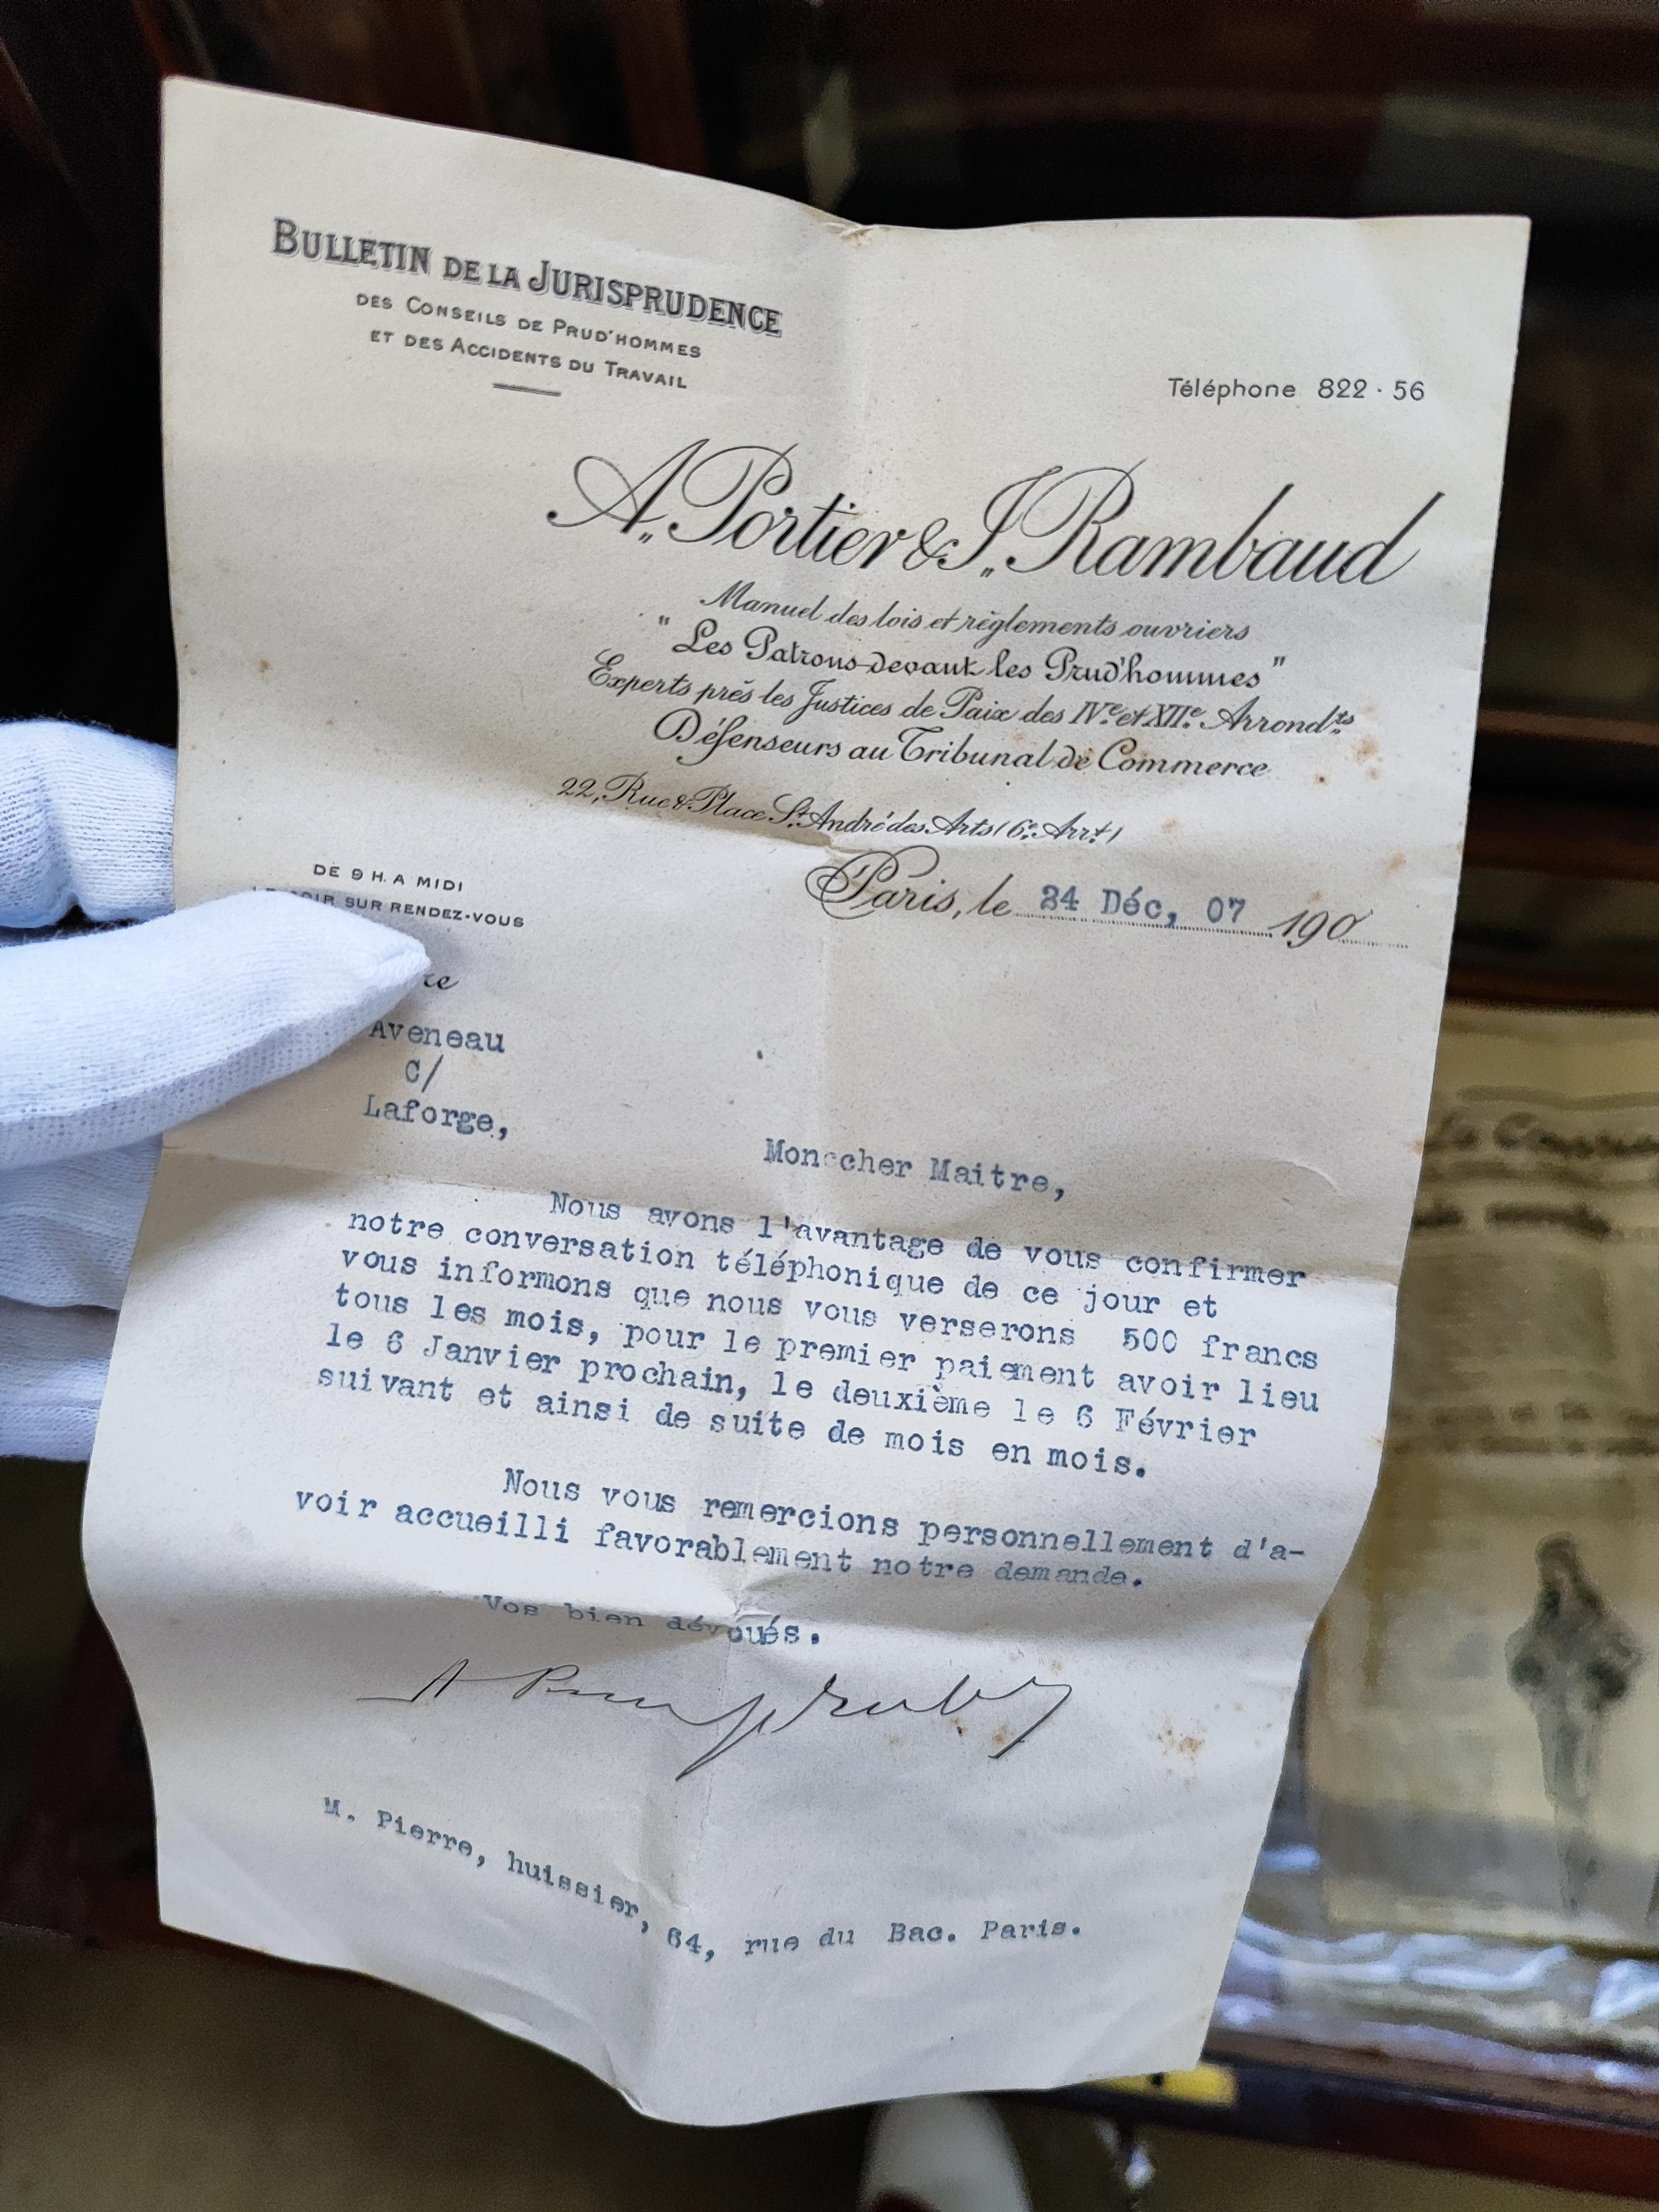 BULLETIN DE LA JURISPRUDENCE
DES CONSEILS DE PRUD'HOMMES
ET DES ACCIDENTS DU TRAVAIL
Téléphone 822·56
A. Portier & J. Rambaud
Manuel des lois et règlements ouvriers
"Les Patrons devant les Prud'hommes"
Experts près les Justices de Paix des IVe et XIIe Arrondts
Défenseurs au Tribunal de Commerce
22, Rue & Place St André des Arts (6e Arrt)
DE 9 H. A MIDI
SUR RENDEZ-VOUS
Paris, le 24 Déc, 07 190
Aveneau
C/
Laforge,
Mon cher Maitre,
Nous avons l'avantage de vous confirmer
notre conversation téléphonique de ce jour et
vous informons que nous vous verserons 500 francs
tous les mois, pour le premier paiement avoir lieu
le 6 Janvier prochain, le deuxième le 6 Février
suivant et ainsi de suite de mois en mois.
Nous vous remercions personnellement d'a-
voir accueilli favorablement notre demande.
Vos bien dévoués.
M. Pierre, huissier, 64, rue du Bac. Paris.